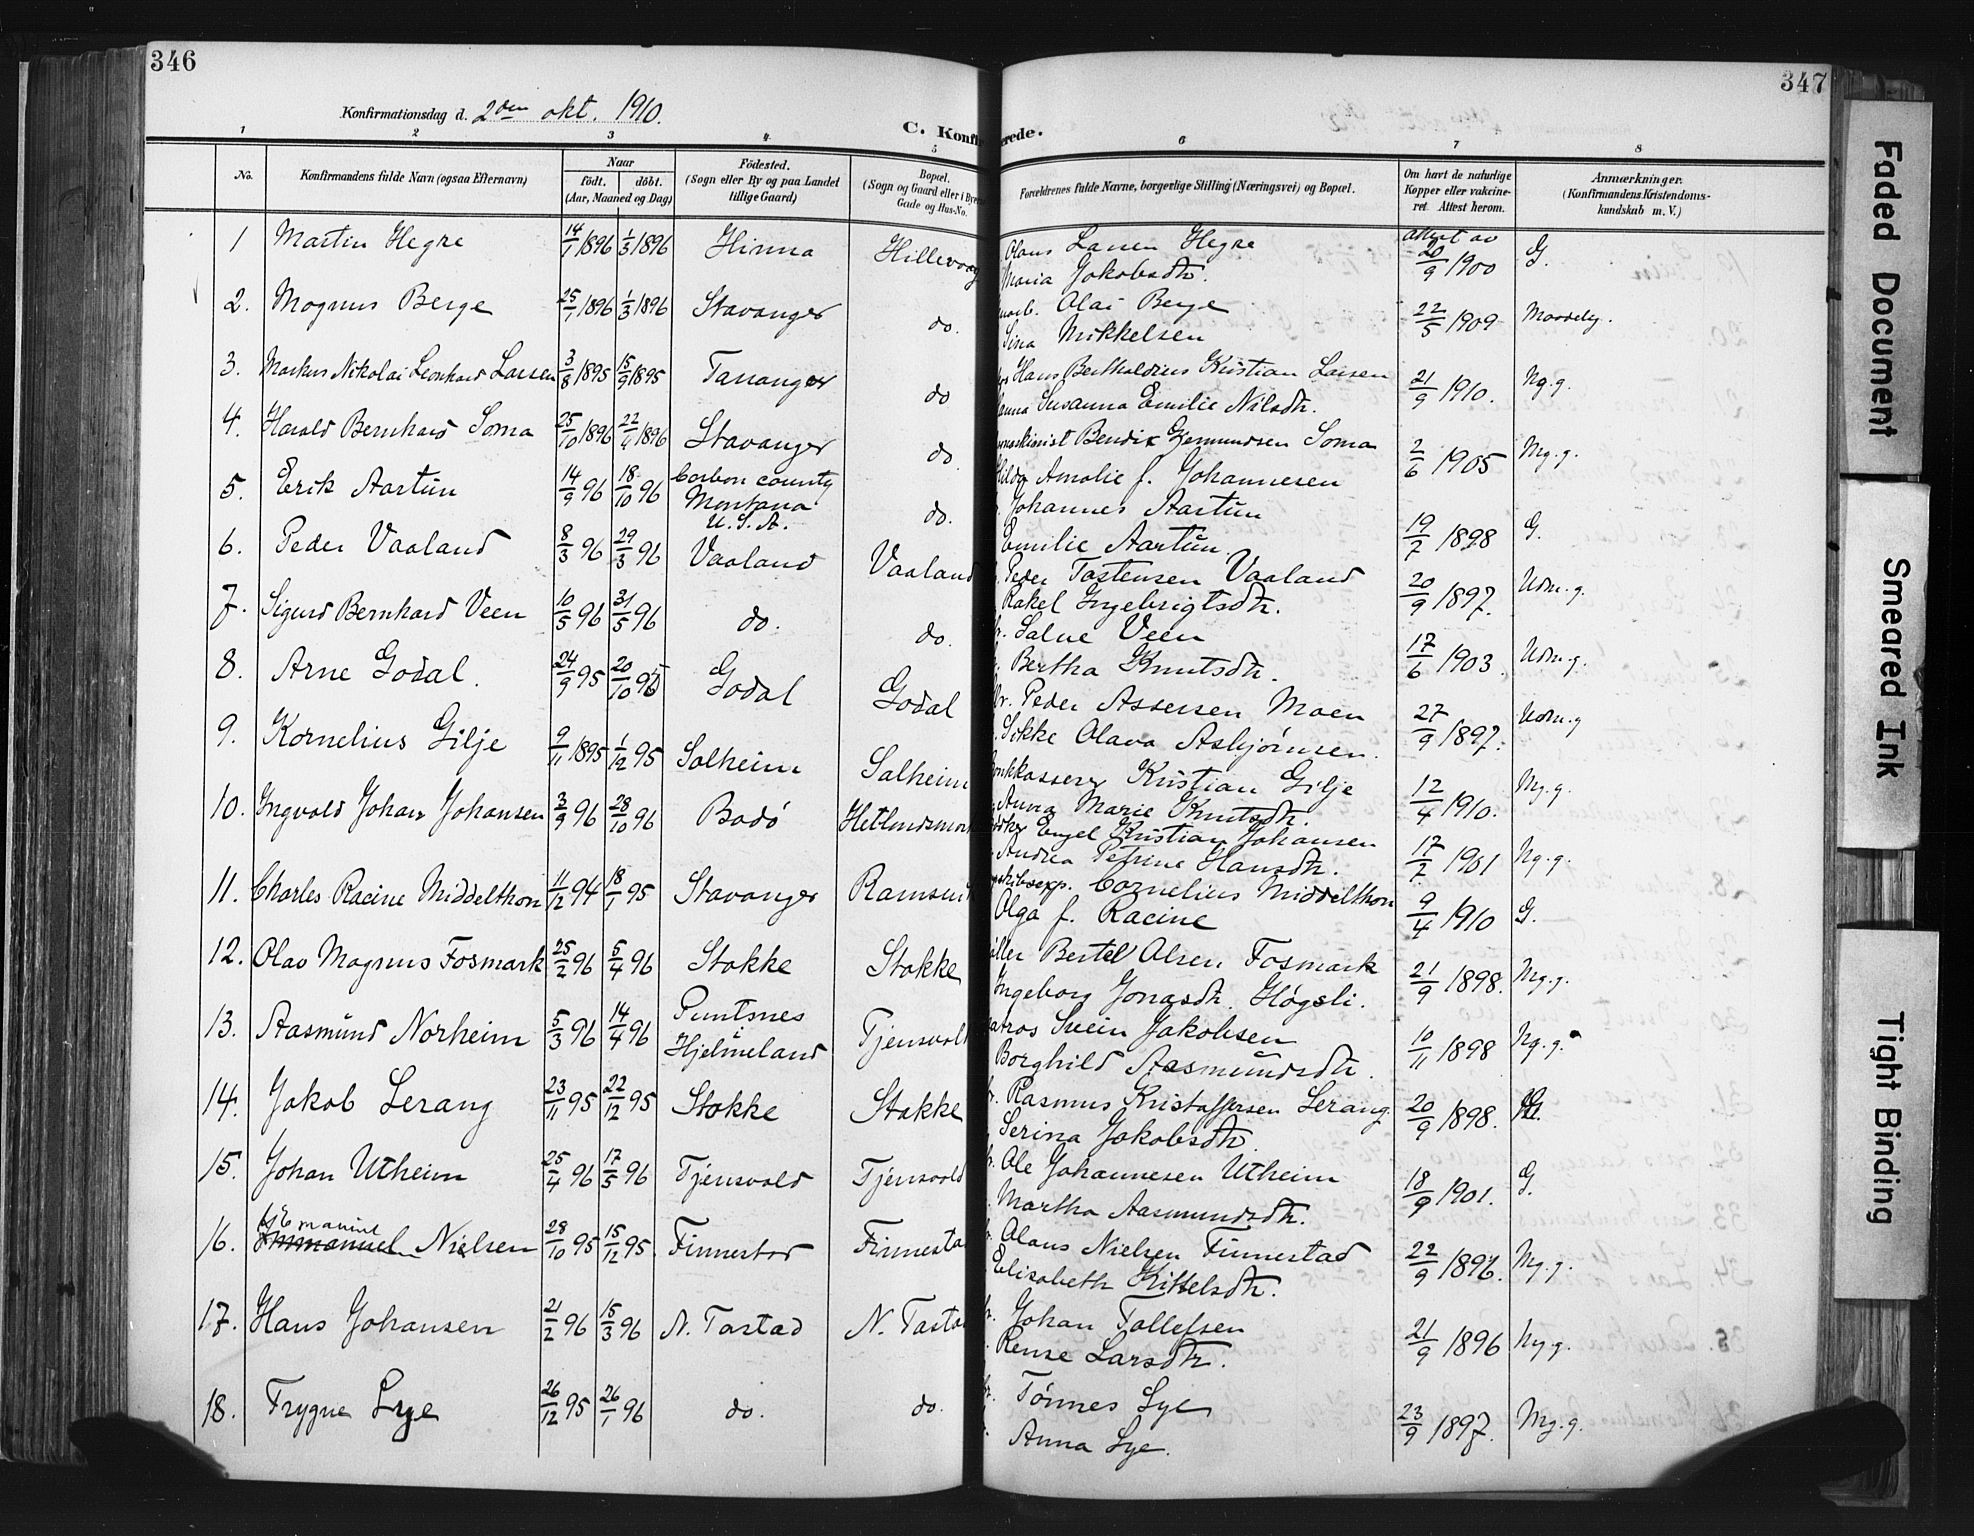 346
347
Konfirmationsdag d. 2den okt. 1910.
C. Konfir erede.
1 2 3 4 5 6 7 8
No.
Konfirmandens fulde Navn (ogsaa Efternavn)
Naar
født. døbt.
(Aar, Maaned og Dag)
Fødested.
(Sogn eller By og paa Landet
tillige Gaard)
Bopæl.
(Sogn og Gaard eller i Byern
Gade og Hus-No.
Forældrenes fulde Navne, borgerlige Stilling (Næringsvei) og Bopæl.
Om havt de naturlige
Kopper eller vakcine-
ret Attest herom.
Anmærkninger.
(Konfirmandens Kristendoms-
kundskab m. V.)
1 Martin Hegre 14/1 1896 1/3 1896 Hinna Hillevaag Olaus Lauen Hegre attest av 20/9 1900 G.
Maria Jakobsdtr.
2. Magnus Berge 25/1 1896 1/3 1896 Stavanger do. arb. Olai Berge 22/5 1909 Maadelig.
Sina Mikkelsen
3. Markus Nikolai Leonhard Larsen 3/8 1895 15/9 1895 Tananger do Hans Bertholdius Kristian Larsen 21/9 1910. Ng.g.
Susanna Emilie Nilsdtr.
4. Harald Bernhard Soma 25/10 1896 22/4 1896 Stavanger do maskinist Bendix Gjermundsen Soma 2/6 1905 Mg.g.
Hilda Amalie f. Johannesen
5. Erik Aartun 14/9 96 18/10 96 Carbon county
Montana
U.S.A. do. Johannes Aartun 19/7 1898 G.
Emilie Aartun.
6. Peder Vaaland 8/3 96 29/3 96 Vaaland Vaaland Peder Tastensen Vaaland 20/9 1897. Udm.g.
Rakel Ingebrigtsdtr.
7. Sigurd Bernhard Veen 10/5 96 31/5 96 do. do. Salve Veen 17/6 1903. Udm.g.
Bertha Knutsdtr.
8. Arne Godal. 24/9 95 20/10 95 Godal Godal Peder Assersen Moen 27/9 1897. Udm.g
Sikke Olava Asbjørnsen.
9. Kornelius Gilje 9/11 1895 1/12 95 Solheim Solheim Bankkasserer Kristian Gilje 12/4 1910. Mg.g.
Anna Marie Knutsdtr.
10. Ingvald Johan Johansen 3/9 96 28/10 96 Bodø Hetlandsmark Engel Kristian Johansen 17/7 1901 Ng.g.
Andrea Petrine Hansdtr.
11. Charles Racine Middelthon 11/12 94 18/1 95 Stavanger Ramsund skibsexp. Cornelius Middelthon 9/4 1910 G.
Olga f. Racine
12. Olav Magnus Fosmark 25/2 96 5/4 96 Stokke Stokke Bertel Olsen Fosmark 21/9 1898. Mg.g.
Ingeborg Jonasdtr. Høgsli.
13. Aasmund Norheim 5/3 96 14/4 96 Puntsnes
i
Hjelmeland Tjensvold Svein Jakobsen 10/11 1898 Ng.g.
Borghild Aasmundsdtr.
14. Jakob Lerang 23/11 95 22/12 95 Stokke Stokke Rasmus Kristoffersen Lerang 20/9 1898. G.
Serina Jakobsdtr.
15. Johan Utheim 25/4 96 17/5 96 Tjensvold Tjensvold Ole Johannesen Utheim 18/9 1901. G.
Martha Aasmundsdtr.
16. Emanuel Immanuel Nielsen 28/10 95 15/12 95 Finnestad Finnesta Olaus Nielsen Finnestad 22/9 1896. Mg.g.
Elisabeth Kittelsdtr.
17. Hans Johansen 21/2 96 15/3 96 N. Tastad N. Tasta Johan Tollefsen 21/9 1896 Ng.g.
Rense Larsdtr.
18. Trygve Lye 26/12 95 26/1 96 do. do. Tønnes Lye 23/9 1897. Mg.g.
Anna Lye.
Faded Document
Smeared Ink
Tight Binding